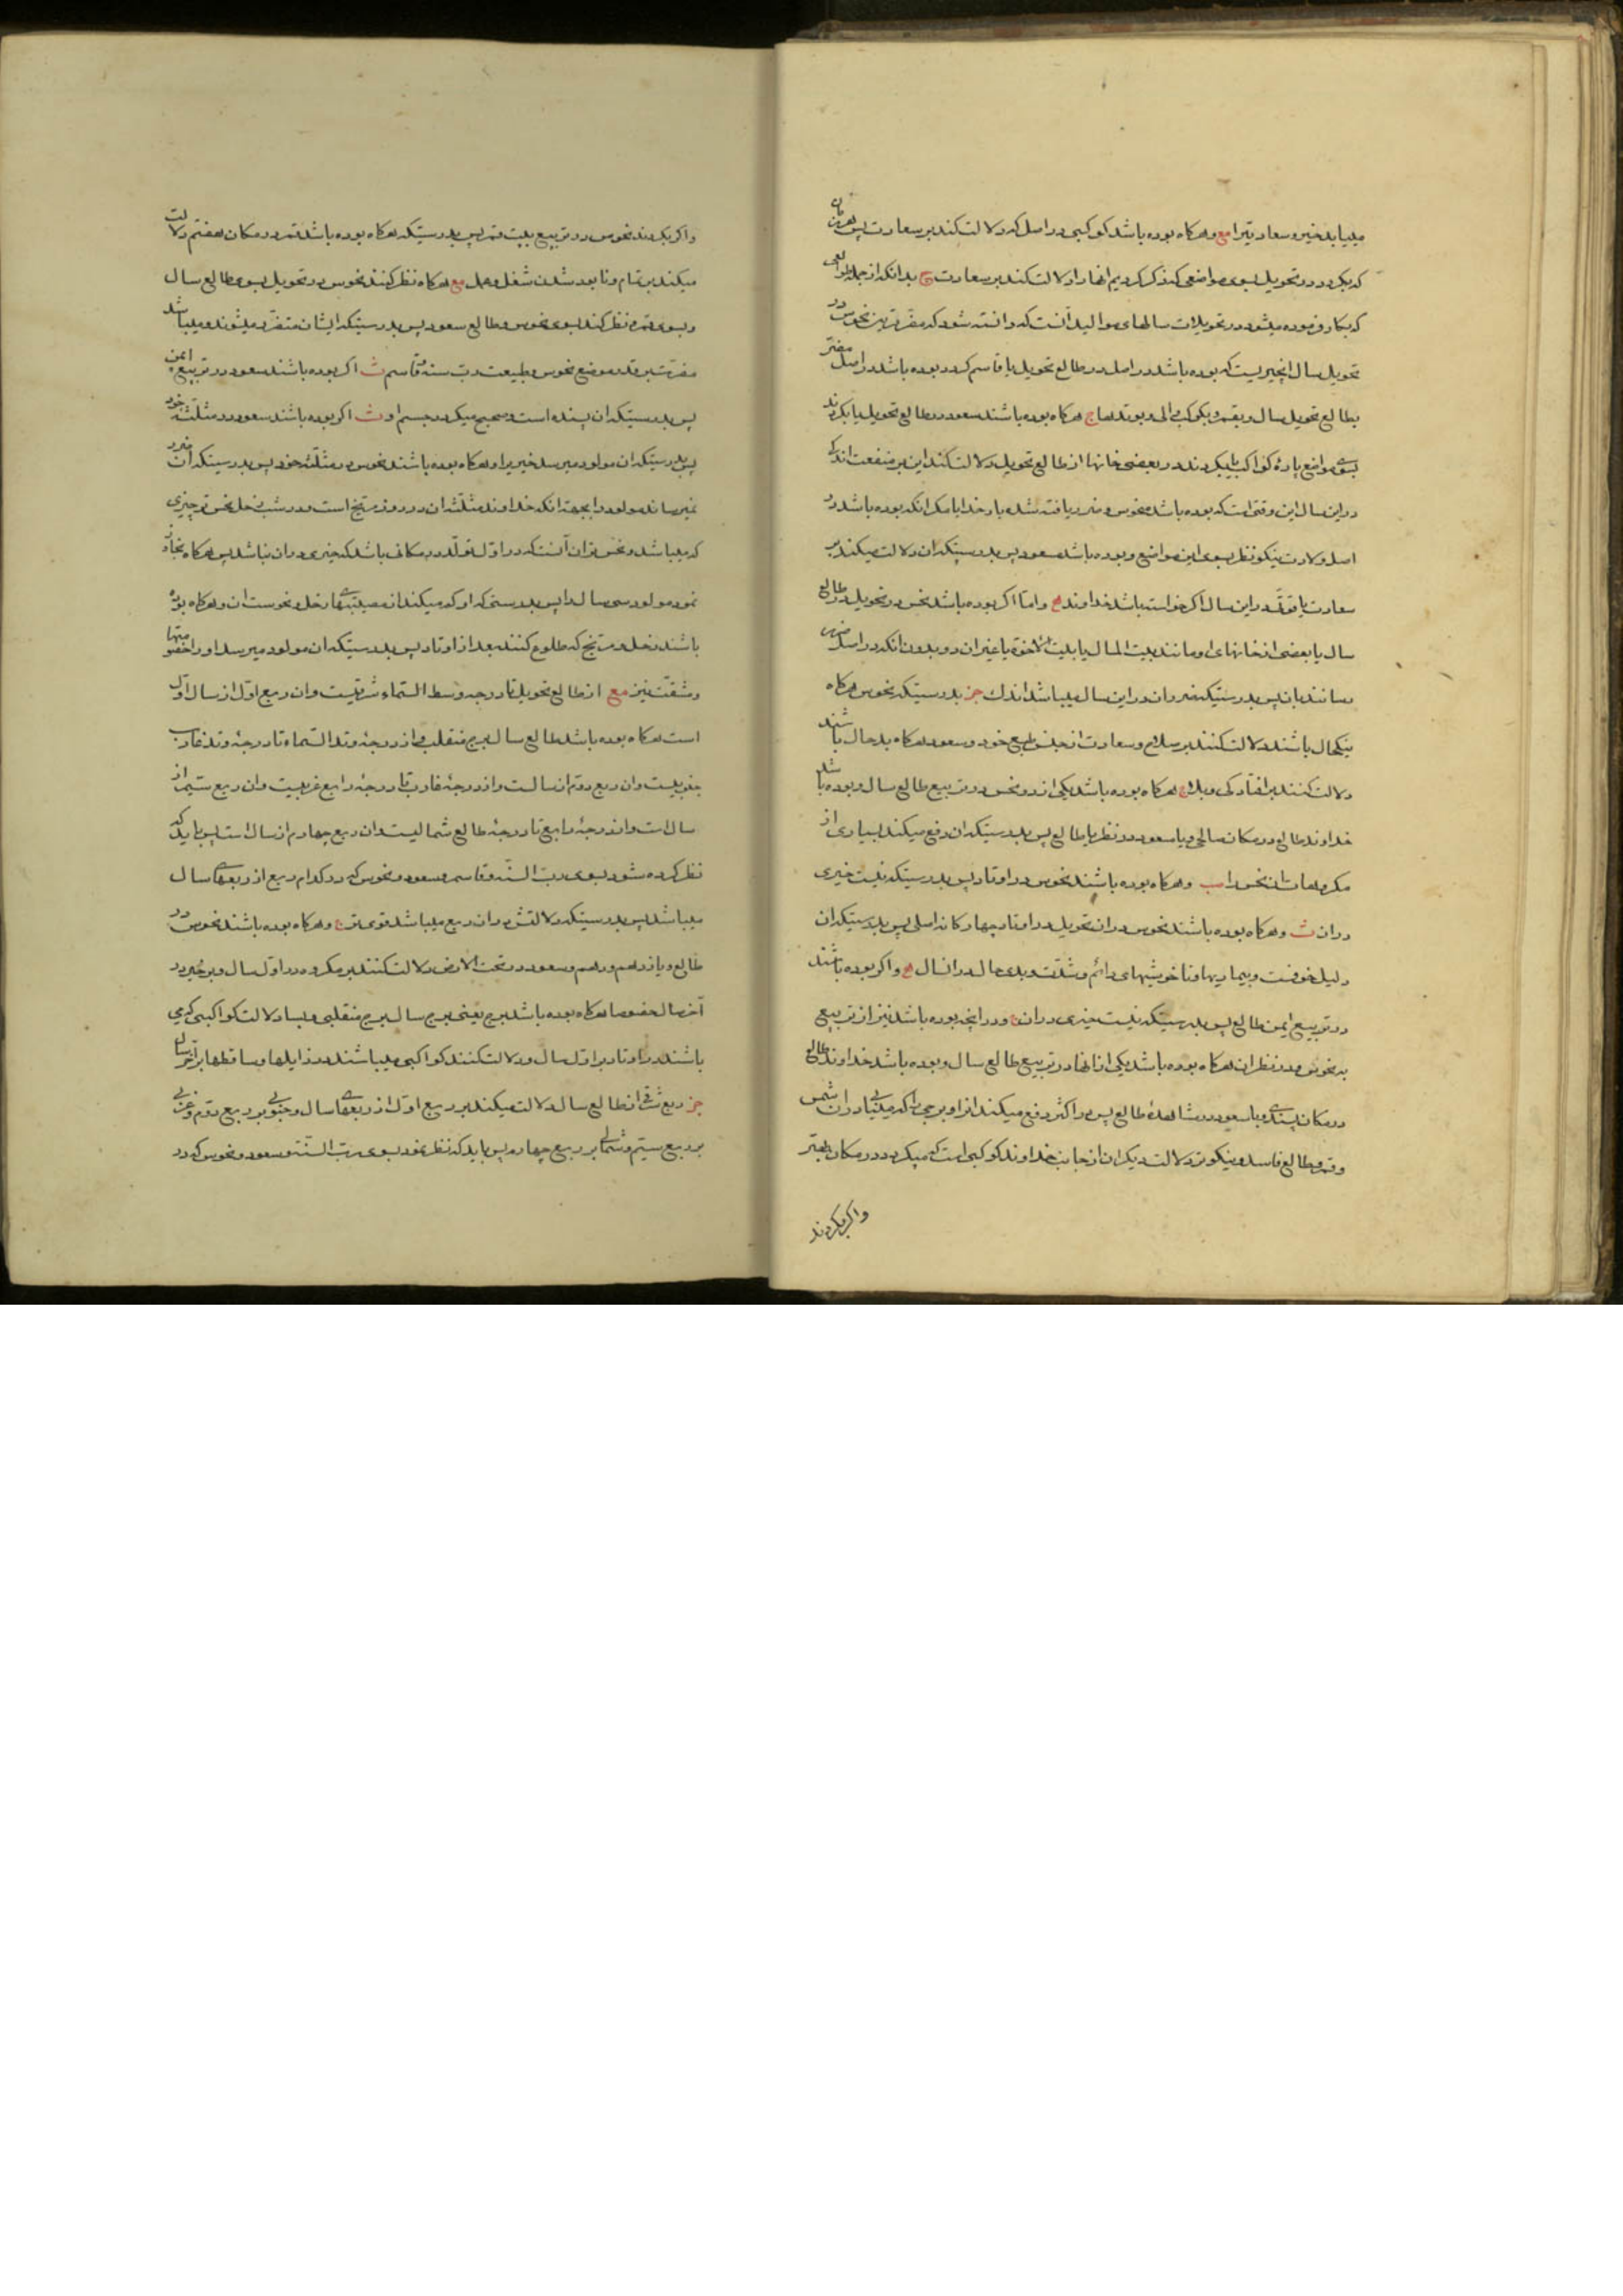 میبابد خیر و سعادتیرا مع و هرکاه بوده باشد کوکبی در اصل که دلالت کند بر سعادت پس
که بکردد در تحویل بسوی مواضعی که ذکر کردیم انها را دلالت کند بر سعادت بدانکه از جمله
که بکار فرموده میشود در تحویلات سالهای موالید آنست که دانسته شود که مضرترین نحوس در
تحویل سال انچیزیست که بوده باشد در اصل در طالع تحویل یا قاسم کردد بوده باشد در اصل مضر
بطالع تحویل سال و بقمر و بکوکب والی و بوتدها ج هرکاه بوده باشند سعود در طالع تحویل یا بکردند
بسوی مواضع پارهٔ کواکب یا بکردند در بعضی خانها از طالع تحویل دلالت کند این بر منفعت اندکی
در این سال این وقتی است که بوده باشد منحوس و ضرر یافته شده باشد خدایا مکر انکه بوده باشد در
اصل ولادت نیکو نظر بسوی این مواضع و بوده باشد مسعود پس بدرستیکه ان دلالت میکند بر
سعادت یا تولد در این سال اکر خواسته باشد خداوند و اما اکر بوده باشد نحس در تحویل در طالع
سال یا بعضی از خانهای او مانند بیت المال یا بیت الاخوة یا غیر ان دو بدون انکه در اصل ضرر
رسانند بان پس بدرستیکه ضرر وان در این سال میباشد اندک جز بدرستیکه نحوس هرکاه
نیکحال باشند دلالت کنند بر سلام و سعادت از جنس طبع خود و سعود هرکاه بدحال باشند
دلالت کنند بر افتادکی و بدی هرکاه بوده باشد یکی از دو نحس در تربیع طالع سال و بوده باشد
خداوند طالع در مکان صالحی و یا سعود در نظر با طالع پس بدرستیکه ان دفع میکند بسیاری از
مکروهات ان نحس را مب و هرکاه بوده باشند نحوس در اوتاد پس بدرستیکه نیست خیری
در ان ث و هرکاه بوده باشند نحوس در ان تحویل در اوتاد چهارکانه اصلی پس بدرستیکه ان
دلیل خوفست و بیماریها و ناخوشیهای دائم و شدت و بدی حال در انسال و اکر بوده باشند
در تربیع ایمن طالع پس بدرستیکه نیست خیری در ان و در انچه بوده باشد نیز از تربیع
به نحوس و در نظر ان هرکاه بوده باشد یکی از انها در تربیع طالع سال و بوده باشد خداوند طالع
در مکان پسندیده و یا سعود در مشاهدهٔ طالع پس در اکثر دفع میکند انرا و برجی را که میباشد در ان شمس
و قمر و طالع فاسد و نیکوتر دلالت دیکر ان از جانب خداوند کوکبی است که میکردد در مکان بهتر
واکر بکردند
واکر بکردند نحوس در تربیع بیت قمر پس بدرستیکه هرکاه بوده باشد قمر در مکان هفتم دلالت
میکند بر تمام و نابود شدن شغل و عمل مع هرکاه نظر کنند نحوس در تحویل بسوی طالع سال
و بسوی قمر و نظر کند بسوی نحوس و طالع سعود پس بدرستیکه ایشان متضرر میشوند و میباشد
مضرت بر قدر موضع نحوس و طبیعت رب سنه و قاسم ث اکر بوده باشند سعود در تربیع ایمن
پس بدرستیکه ان پسندیده است و صحیح میکردد جسم او ث اکر بوده باشند سعود در مثلثهٔ خود
پس بدرستیکه ان مولود میرسد خیر برا و هرکاه بوده باشند نحوس در مثلثهٔ خود پس بدرستیکه ان ضرر
نمیرساند مولود را بجهة انکه خداوند مثلثه ان در روز مریخ است و در شب زحل نحس تر چیزی
که میباشد و نحس تر ان آنست که در اول تولد در مکانی باشد که خیری در ان نباشد پس هرکاه تجاوز
نمود مولود سی سال را پس بدرستی که او کم میکند از مصیبتهای زحل و نحوست ان و هرکاه بوده
باشند زحل و مریخ که طلوع کنند بعد از اوتاد پس بدرستیکه ان مولود میرسد او را خصومتها
و مشقت نیز مع از طالع تحویل تا درجه وسط السماء شرقیست و ان ربع اول از سال اول
است هرکاه بوده باشد طالع سال برج منقلب و از درجهٔ وتد السماء تا درجهٔ وتد غارب
جنوبیست و ان ربع دوم از سالست و از درجهٔ غارب تا درجهٔ رابع غربیست و ان ربع سیم از
سال است و از درجهٔ رابع تا درجهٔ طالع شمالیست و ان ربع چهارم از سال است پس باید که
نظر کرده شود بسوی رب السنه و قاسم و سعود و نحوس که در کدام ربع از ربعهای سال
میباشد پس بدرستیکه دلالتش در ان ربع میباشد قوی تر و هرکاه بوده باشند نحوس در
طالع و یازدهم و دهم و سعود در تحت الارض دلالت کنند بر مکروه در اول سال و بر خیر در
آخر سال خصوصا هرکاه بوده باشد برج یعنی برج سال برج منقلبی و بسا دلالت کواکبی که
باشند در اوتاد بر اول سال و دلالت کنند کواکبی میباشند در زایلها و ساقطها بر آخر سال
جز ربع شرقی از طالع سال دلالت میکند بر ربع اول از ربعهای سال و جنوبی بر ربع دوم و غربی
بر ربع سیم و شمالی بر ربع چهارم پس باید که نظر نمود بسوی رب السنه و سعود و نحوس که در